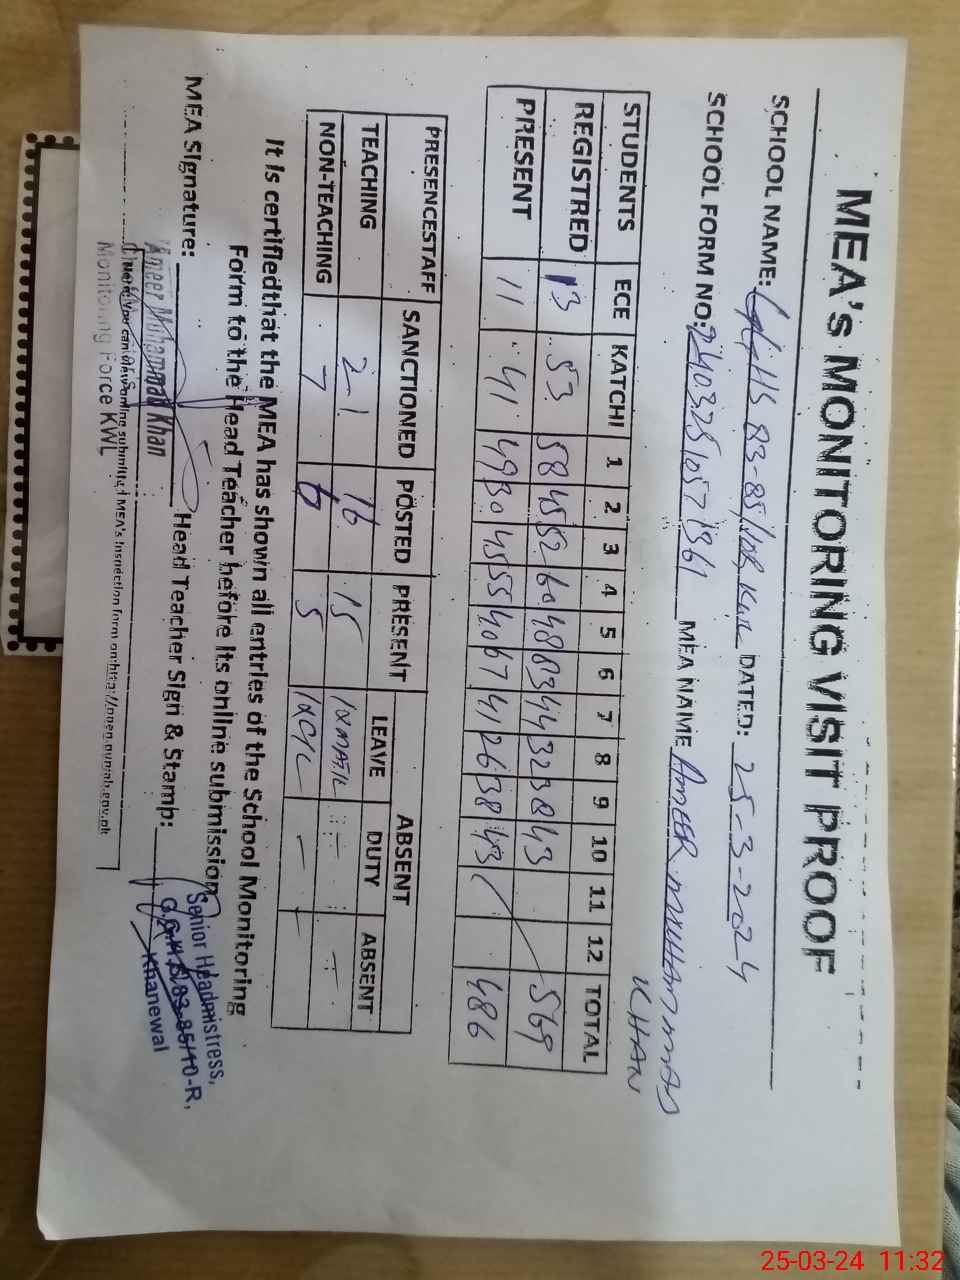 MEA's MONITORING VISIT PROOF
SCHOOL NAME: GGHS 83-85/10R KWL DATED: 25-3-2024
SCHOOL FORM NO: MEA NAME AMEER MUHAMMAD KHAN
STUDENTS ECE KATCHI 1 2 3 4 5 6 7 8 9 10 11 12 TOTAL
REGISTRED 13 53 58 45 52 60 48 83 44 32 38 43 569
PRESENT 11 41 49 30 45 55 40 67 41 26 38 43 486
PRESENCESTAFF SANCTIONED POSTED PRESENT ABSENT
LEAVE DUTY ABSENT
TEACHING 21 16 15
NON-TEACHING 7 6 5 1xC/L - -
It is certifiedthat the MEA has shown all entries of the School Monitoring
Form to the Head Teacher before its online submission
MEA Signature: Head Teacher Sign & Stamp:
Ameer Muhammad Khan
Monitoring Force KWL
Senior Headmistress,
G.G.H.S 83-85/10-R,
Khanewal
Note: You can View online submitted MEA's Inspection form on:http://open.punjab.gov.pk
25-03-24 11:32